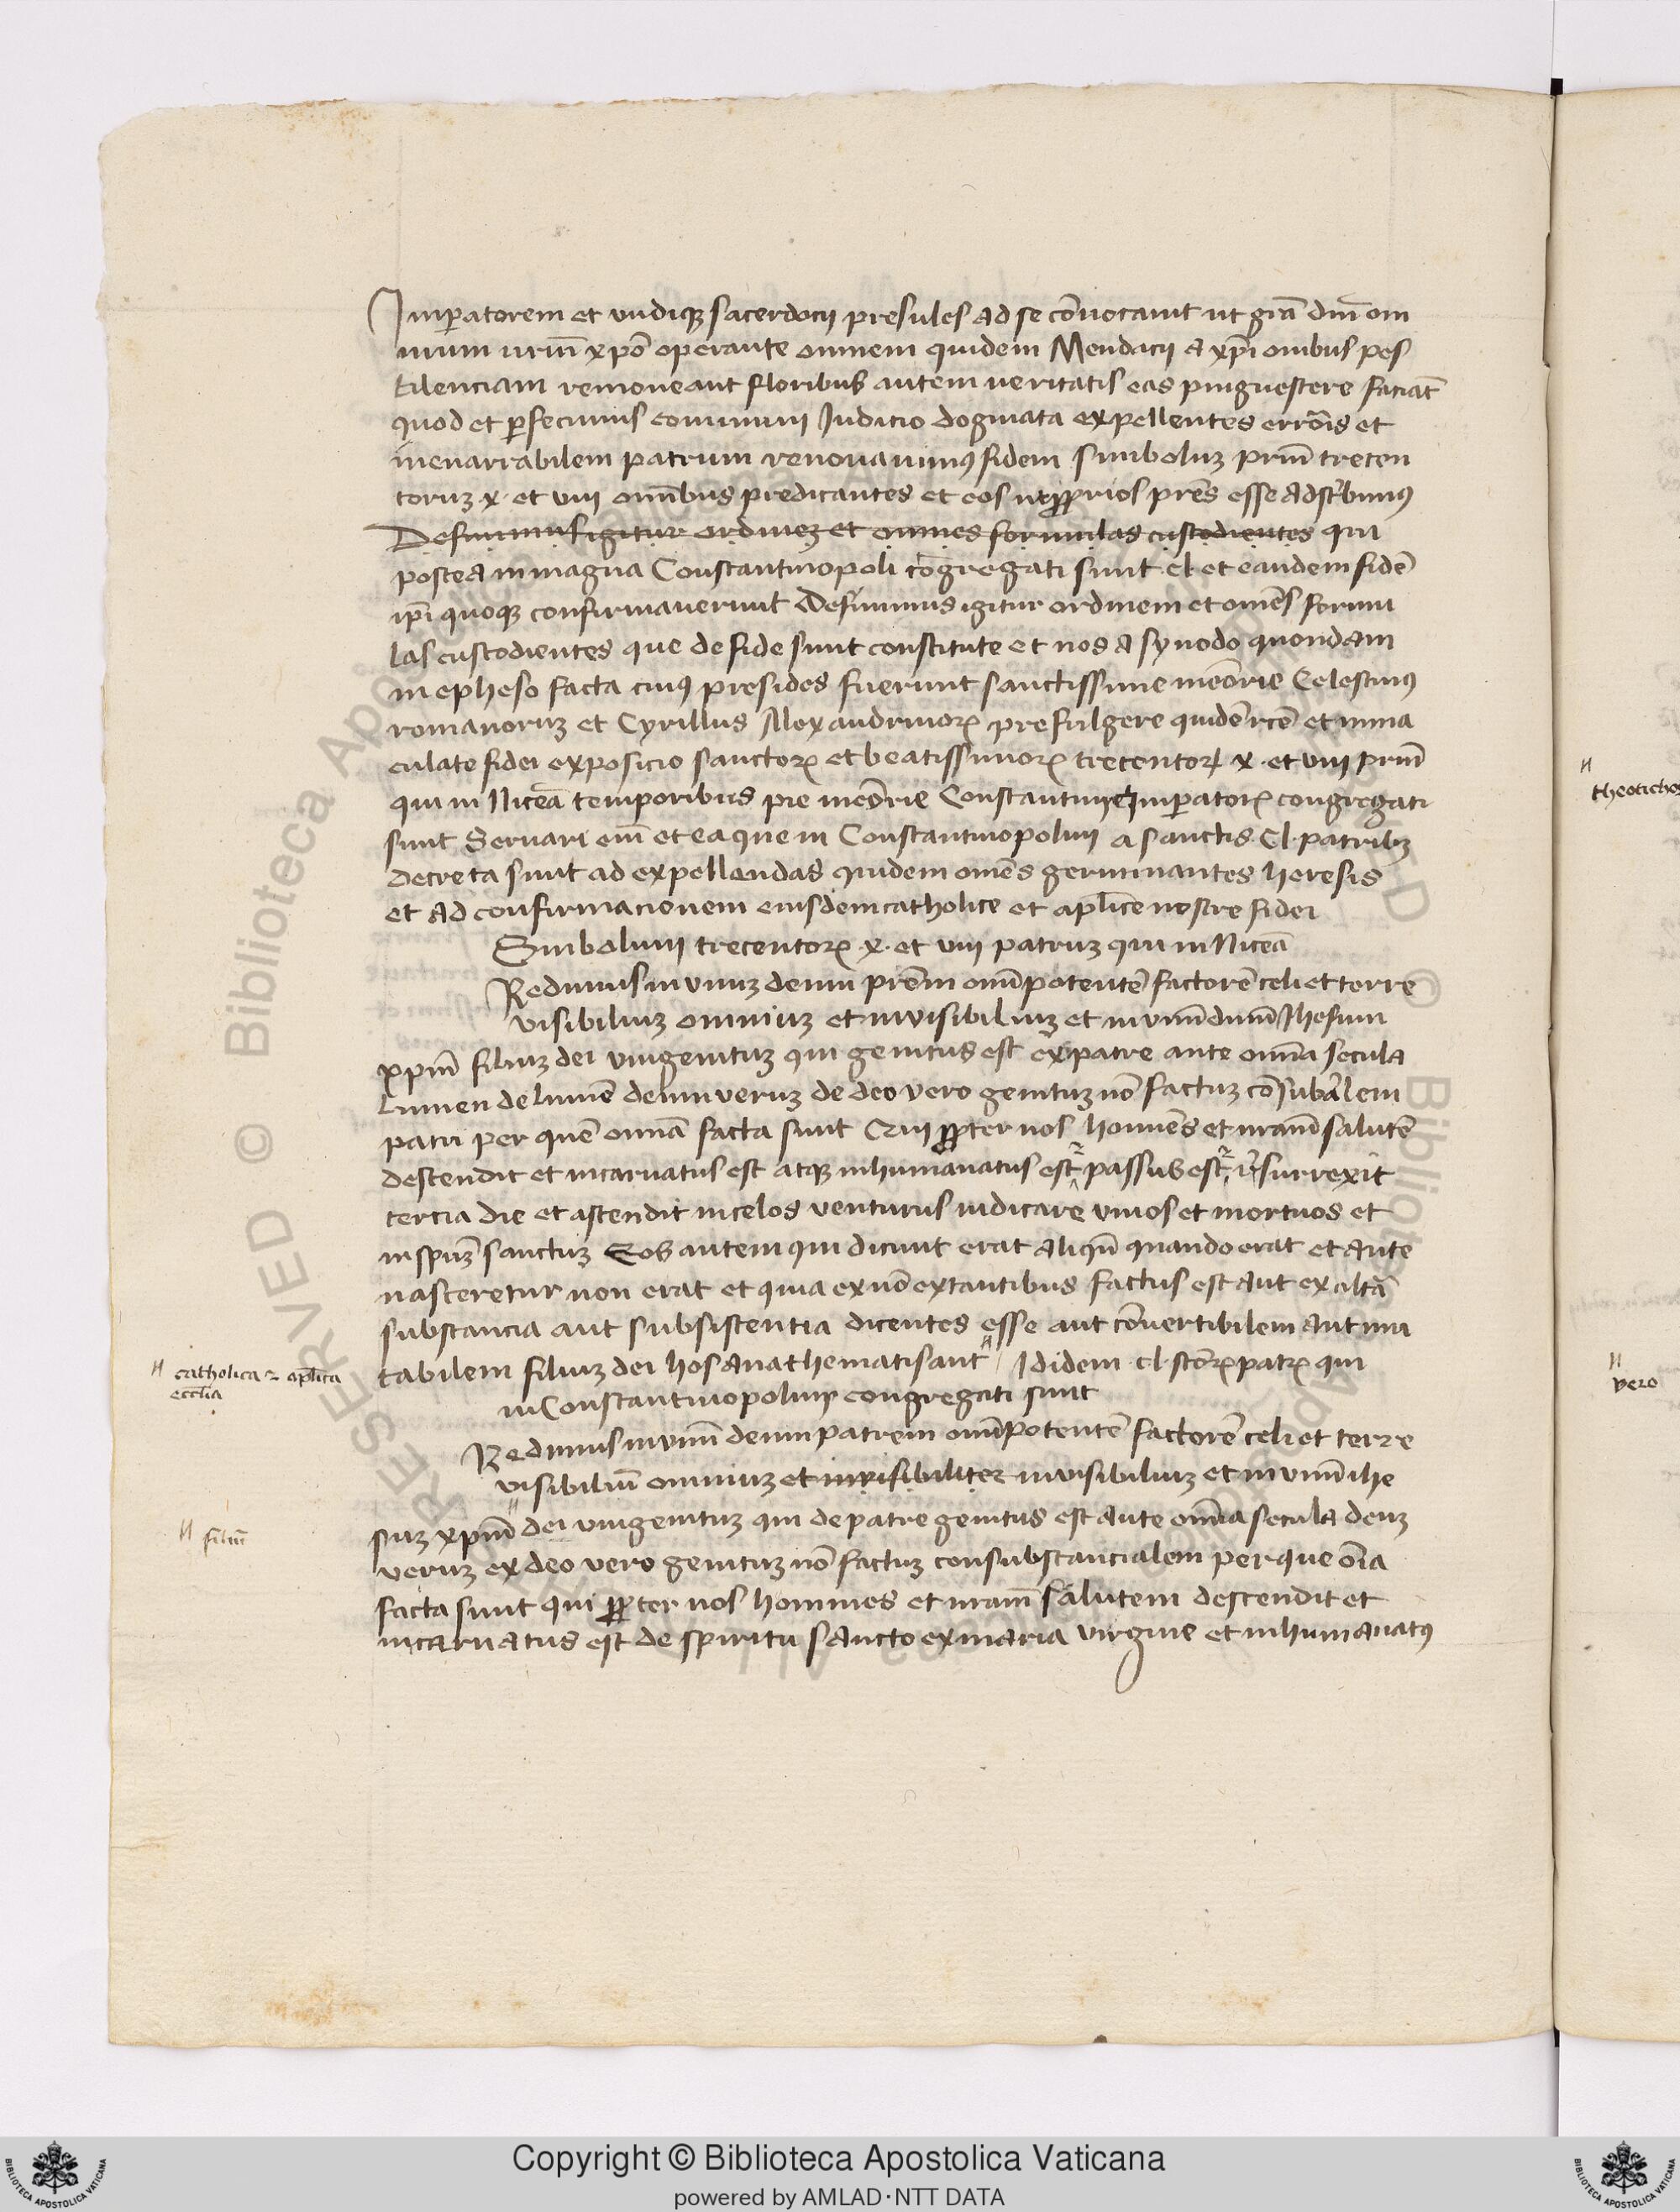 Imꝑatorem et vndiqꝫ sacerdocij presules ad se cōuocauit ut grā dnī om
nium nrm̄ xpō operante omnem quidem Mendacij a xpī ouibus pes
tilenciam remoueant floribus autem ueritatis eas pinguescere faciāt
quod et ꝑfecimus communi Iudicio dogmata expellentes errōis et
inenarrabilem patrum renouauimꝰ fidem simboluꝫ prm̄ trecen
toruꝫ x. et viij omībus predicantes et eos ut ꝓprios prēs esse adscͥbimꝰ
Definimus igitur ordineꝫ et omnes formulas custodientes qui
postea in magna Constantinopoli cōgregati sunt .cl. et eandem fidē
ipī quoqꝫ confirmauerunt Definimus igitur ordinem et omēs formu
las custodientes que de fide sunt constitute et nos a synodo quondam
in epheso facta cuiꝰ presides fuerunt sanctissime meōrie Celestinꝰ
romanoruꝫ et Cyrillus Alexandrinoꝝ prefulgere quidē rcē et inma
culate fidei exposicio sanctoꝝ et beatissimoꝝ trecentoꝝ x. et viij prm̄
qui in Niceā temporibus pie meōrie Constantini Imꝑatoꝝ congregati
sunt Seruari em̄ et ea que in Constantinopolim a sanctis .Cl. patribꝫ
decreta sunt ad expellendas quidem omēs germinantes heresis
et ad confirmacionem eiusdem catholice et aplīce nostre fidei
Simbolum trecentoꝝ .x. et viij patruꝫ qui in Niceā
Redimus in vnuꝫ deum prēm omīpotentē factorē celi et terre
visibiliuꝫ omniuꝫ et invisibiliuꝫ et in vnū dnm̄ Ihesum
xpm̄ filiuꝫ dei vnigenituꝫ qui genitus est ex patre ante omīa secula
Lumen de lumē deum veruꝫ de deo vero genituꝫ nō factuꝫ cōsubālem
patri per quē omīa facta sunt Qui ꝓpter nos homiēs et nram̄ salutē
descendit et incarnatus est atqꝫ inhumanatus est ⁊ passus est ⁊ rͤsurrexit
tercia die et ascendit in celos venturus iudicare viuos et mortuos et
in spūꝫ sanctuꝫ Eos autem qui dicunt erat aliqn̄ quando erat et Ante
nasceretur non erat et quia ex nō extantibus factus est Aut ex altā
substancia aut subsistentia dicentes esse aut cōuertibilem Aut mu
tabilem filiuꝫ dei hos Anathematisant Ididem .cl. scōꝝ patꝝ qui
in Constantinopolim congregati sunt
Redimus in vnū deum patrem omīpotentē factorē celi et terre
visibiliū omniuꝫ et invisibiliter invisibiliuꝫ et in vnū ihe
suꝫ xpm̄ dei vnigenituꝫ qui de patre genitus est Ante omīa secula deuꝫ
veruꝫ ex deo vero genituꝫ nō factuꝫ consubstancialem per que oīa
facta sunt qui ꝓpter nos homines et nram̄ salutem descendit et
incarnatus est de spiritu sAncto ex maria virgine et inhumanatꝰ
catholica ⁊ aplīca
ecclīa
filiū
theotichos
vero
Copyright © Biblioteca Apostolica Vaticana
powered by AMLAD·NTT DATA